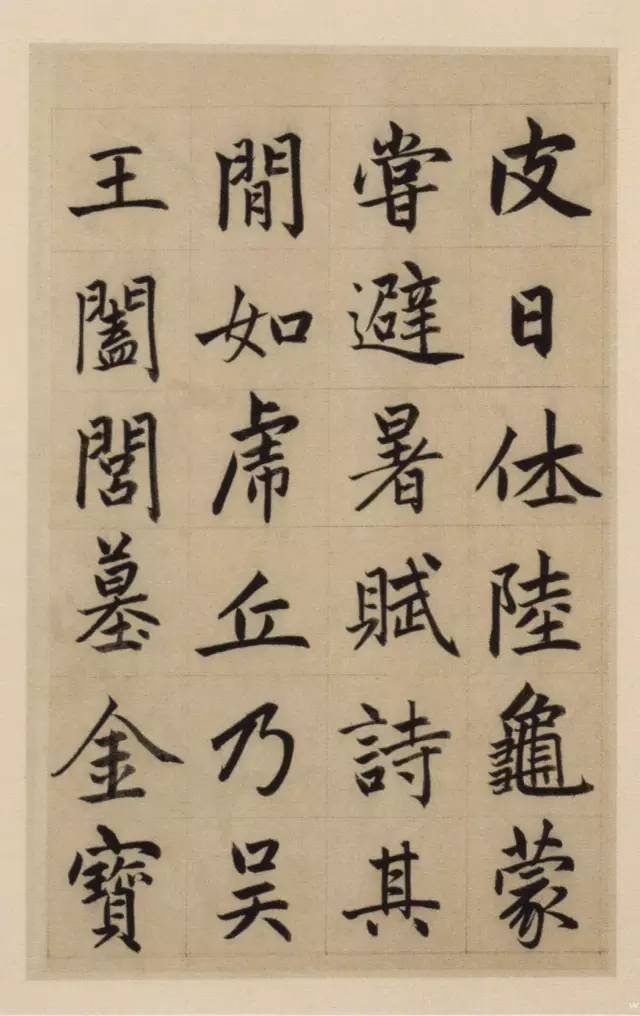 皮日休陸龜蒙
嘗避暑賦詩其
間如虎丘乃吴
王闔閭墓金寶